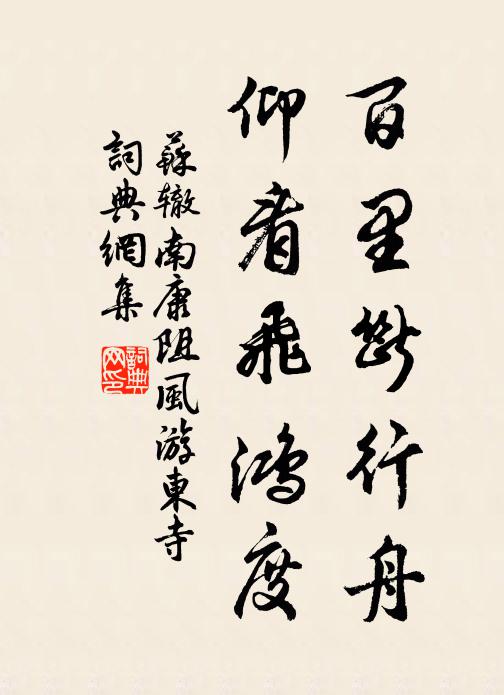 百里斷行舟
仰看飛鴻度
蘇辙南康阻風游東寺
詞典網集
詞典网印